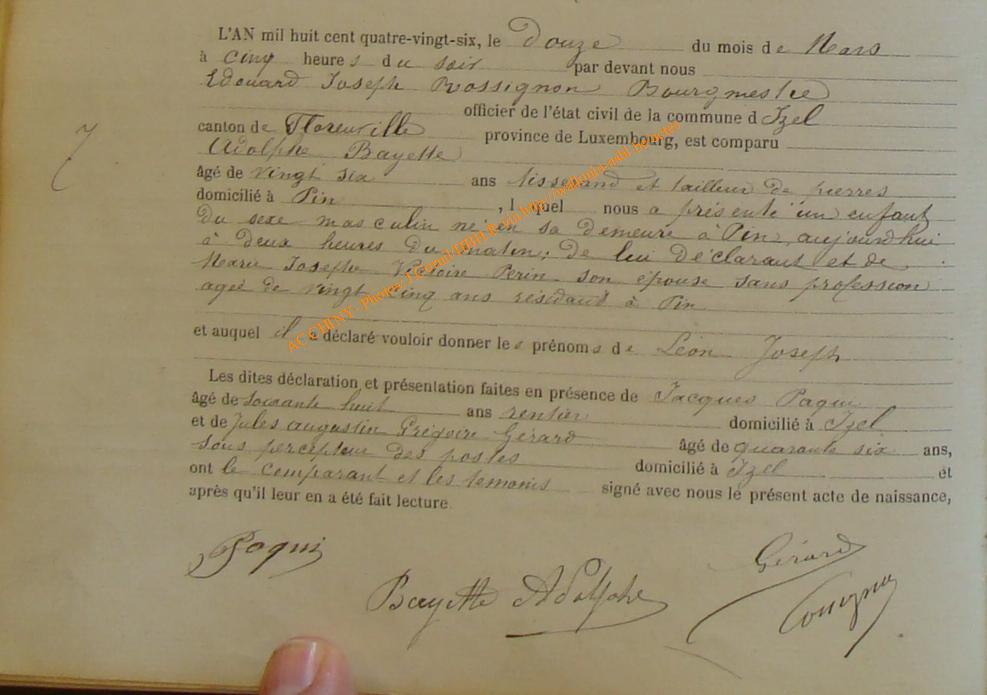 L'AN mil huit cent quatre-vingt-six, le Douze du mois de Mars
à cinq heures du soir par devant nous
Edouard Joseph Rossignon Bourgmestre
officier de l'état civil de la commune d Izel
canton de Florenville province de Luxembourg, est comparu
Adolphe Bayette
âgé de vingt six ans tisserand et tailleur de pierres
domicilié à Pin, l quel nous a présenté un enfant
du sexe masculin né en sa demeure à Pin, aujourd'hui
à deux heures du matin; de lui déclarant et de
Marie Josephe Victoire Perin son épouse sans profession
agée de vingt cinq ans résidant à Pin
et auquel il a déclaré vouloir donner les prénoms de Léon Joseph
Les dites déclaration et présentation faites en présence de Jacques Paqui
âgé de soixante huit ans rentier domicilié à Izel
et de Jules augustin Grégoire Gérard âgé de quarante six ans,
sous percepteur des postes domicilié à Izel et
ont le comparant et les temoins signé avec nous le présent acte de naissance,
après qu'il leur en a été fait lecture.
7
Paqui
Gérard
Bayette Adolphe
AC CHINY - Photos